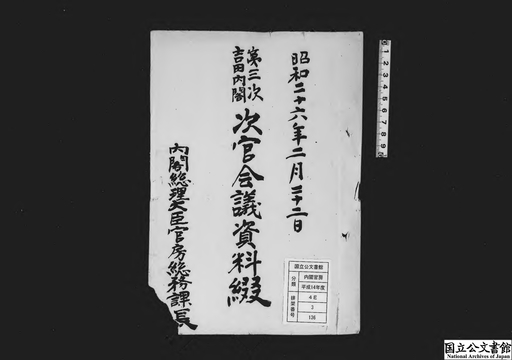 昭和二十六年二月二十二日
第三次
吉田内閣
次官会議資料綴
内閣総理大臣官房総務課長
国立公文書館
分類
内閣官房
平成14年度
排架番号
4E
3
138
国立公文書館
National Archives of Japan